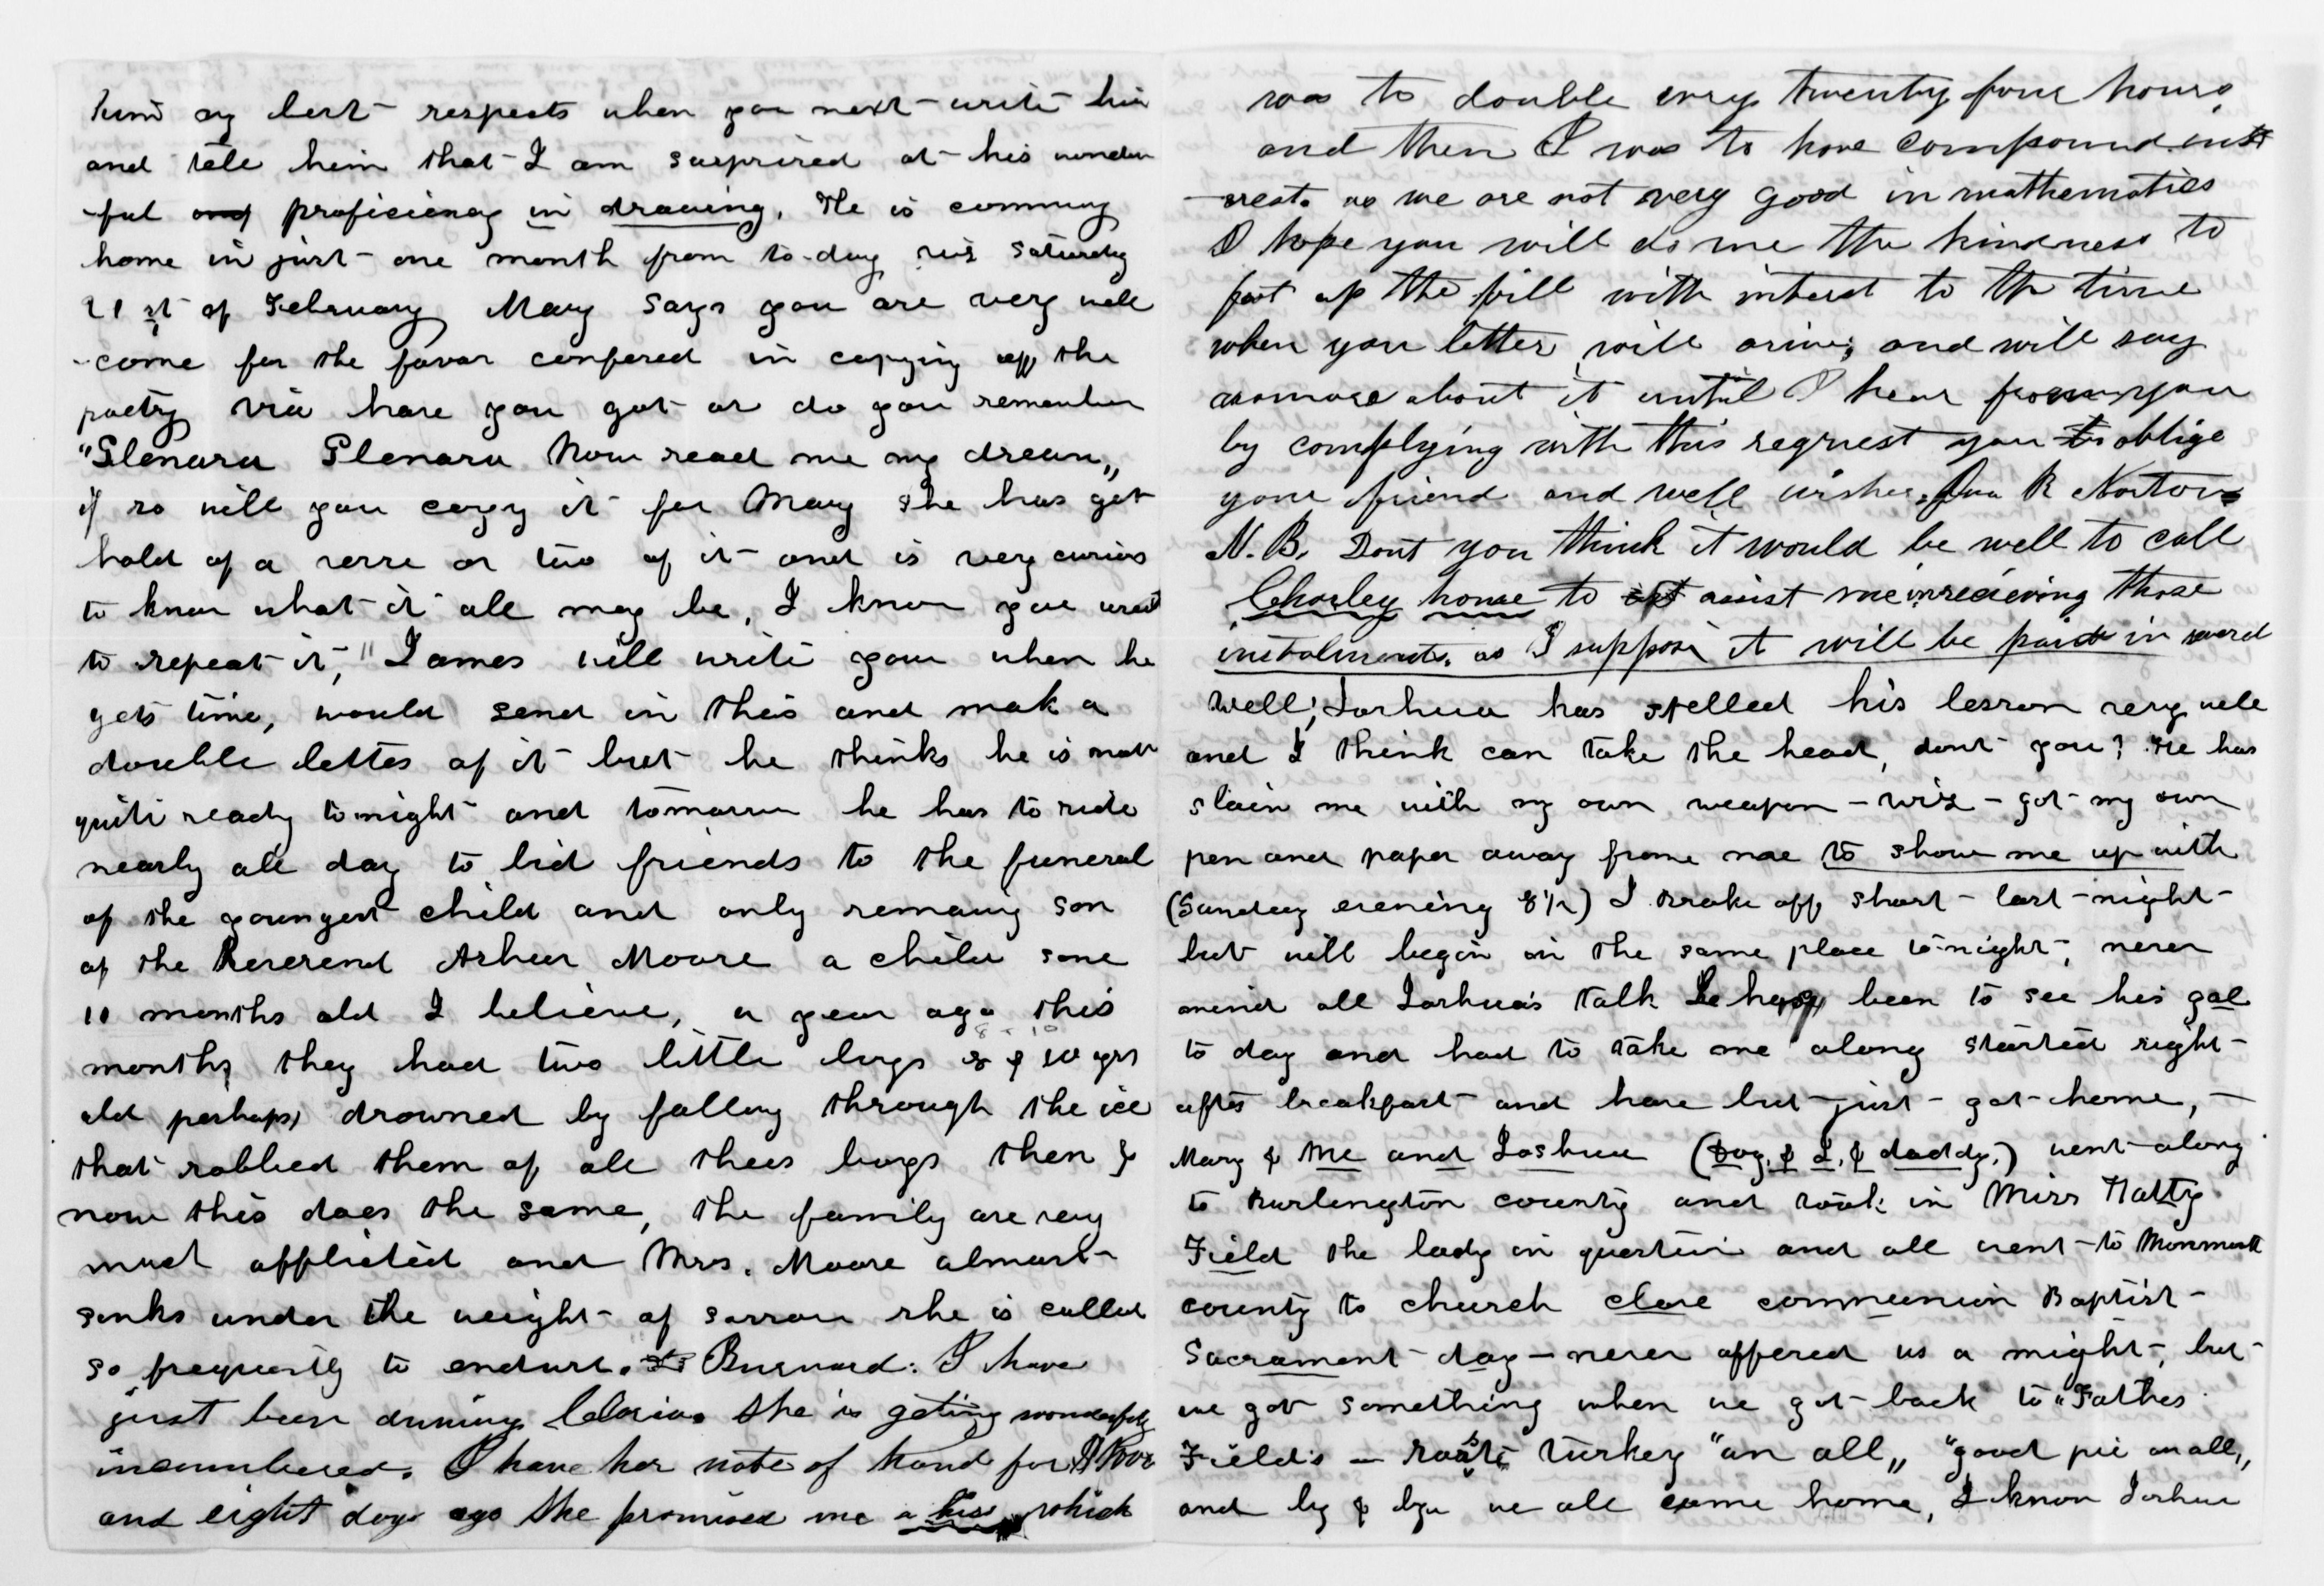 my best respects when you next write him
and tele him that I am surprised at his wonder
-ful and proficiency in drawing. He is comming
home in just one month from to-day viz Saturday
21st of February Mary says you are very wele
-come for the favor confered in copying off the
poetry have you got or do you remember
"Glenara Glenara Now read me my dream„
if so will you copy it for Mary she has got
hold of a verse or two of it and is very curios
to know what it all may be, I know you used
to repeat it," James will write you when he
gets time, would send in this and mak a
double letter of it but he thinks he is not
quite ready tonight and tomorrow he has to ride
nearly all day to bid friends to the funeral
of the youngest child and only remaing son
of the Reverend Moore a child some
11 months old I believe, a year ago this
months they had two little boys 8 & 10 yrs
old perhaps drowned by falling through the ice
that robbed them of all thees boys then &
now this does the same, the family are very
much afflicted and Mrs. Moore almost
sinks under the weight of sorrow she is called
so frequently to endure. Burnard: I have
just been dunning she is geting wonderfuly
incumbered. I have her note of hand for
and eight days ago she promised me a kiss which
was to double evry twenty four hours
and then I was to have compound inte
-rest. as we are not very good in mathematics
I hope you will do me the kindness to
foot up the bill with interest to the time
when you letter will arive, and will say
nomore about it until I hear from you
by complying with this request you to oblige
your friend and well wisher. R Norton
N.B. Dont you think it would be well to call
Charley home to assist me in recieving those
instalments. as I suppose it will be paid in
Well, Joshua has spelled his lesson very wele
and I think can take the head, dont you? He has
slain me with my own weapon - viz - got my own
pen and paper away frome me to show me up with
(Sunday evening 8½) I broke off short - last - night -
but will begin in the same place to-night, never
mind all Joshua's talk he been to see his gal
to day and had to take me along started right -
after breakfast and have but just got home, -
Mary & Me and Joshua (Dog, & I, & daddy.) went along
to Burlington county and took in Miss Hatty
Field the lady in question and all went to Monmouth
county to church close communion Baptist -
Sacrament day - never offered us a might, but
we got something when we got back to "Father
Field's - roaste turkey "an all„ "good pie an all„
and by & bye we all came home, I know Joshua